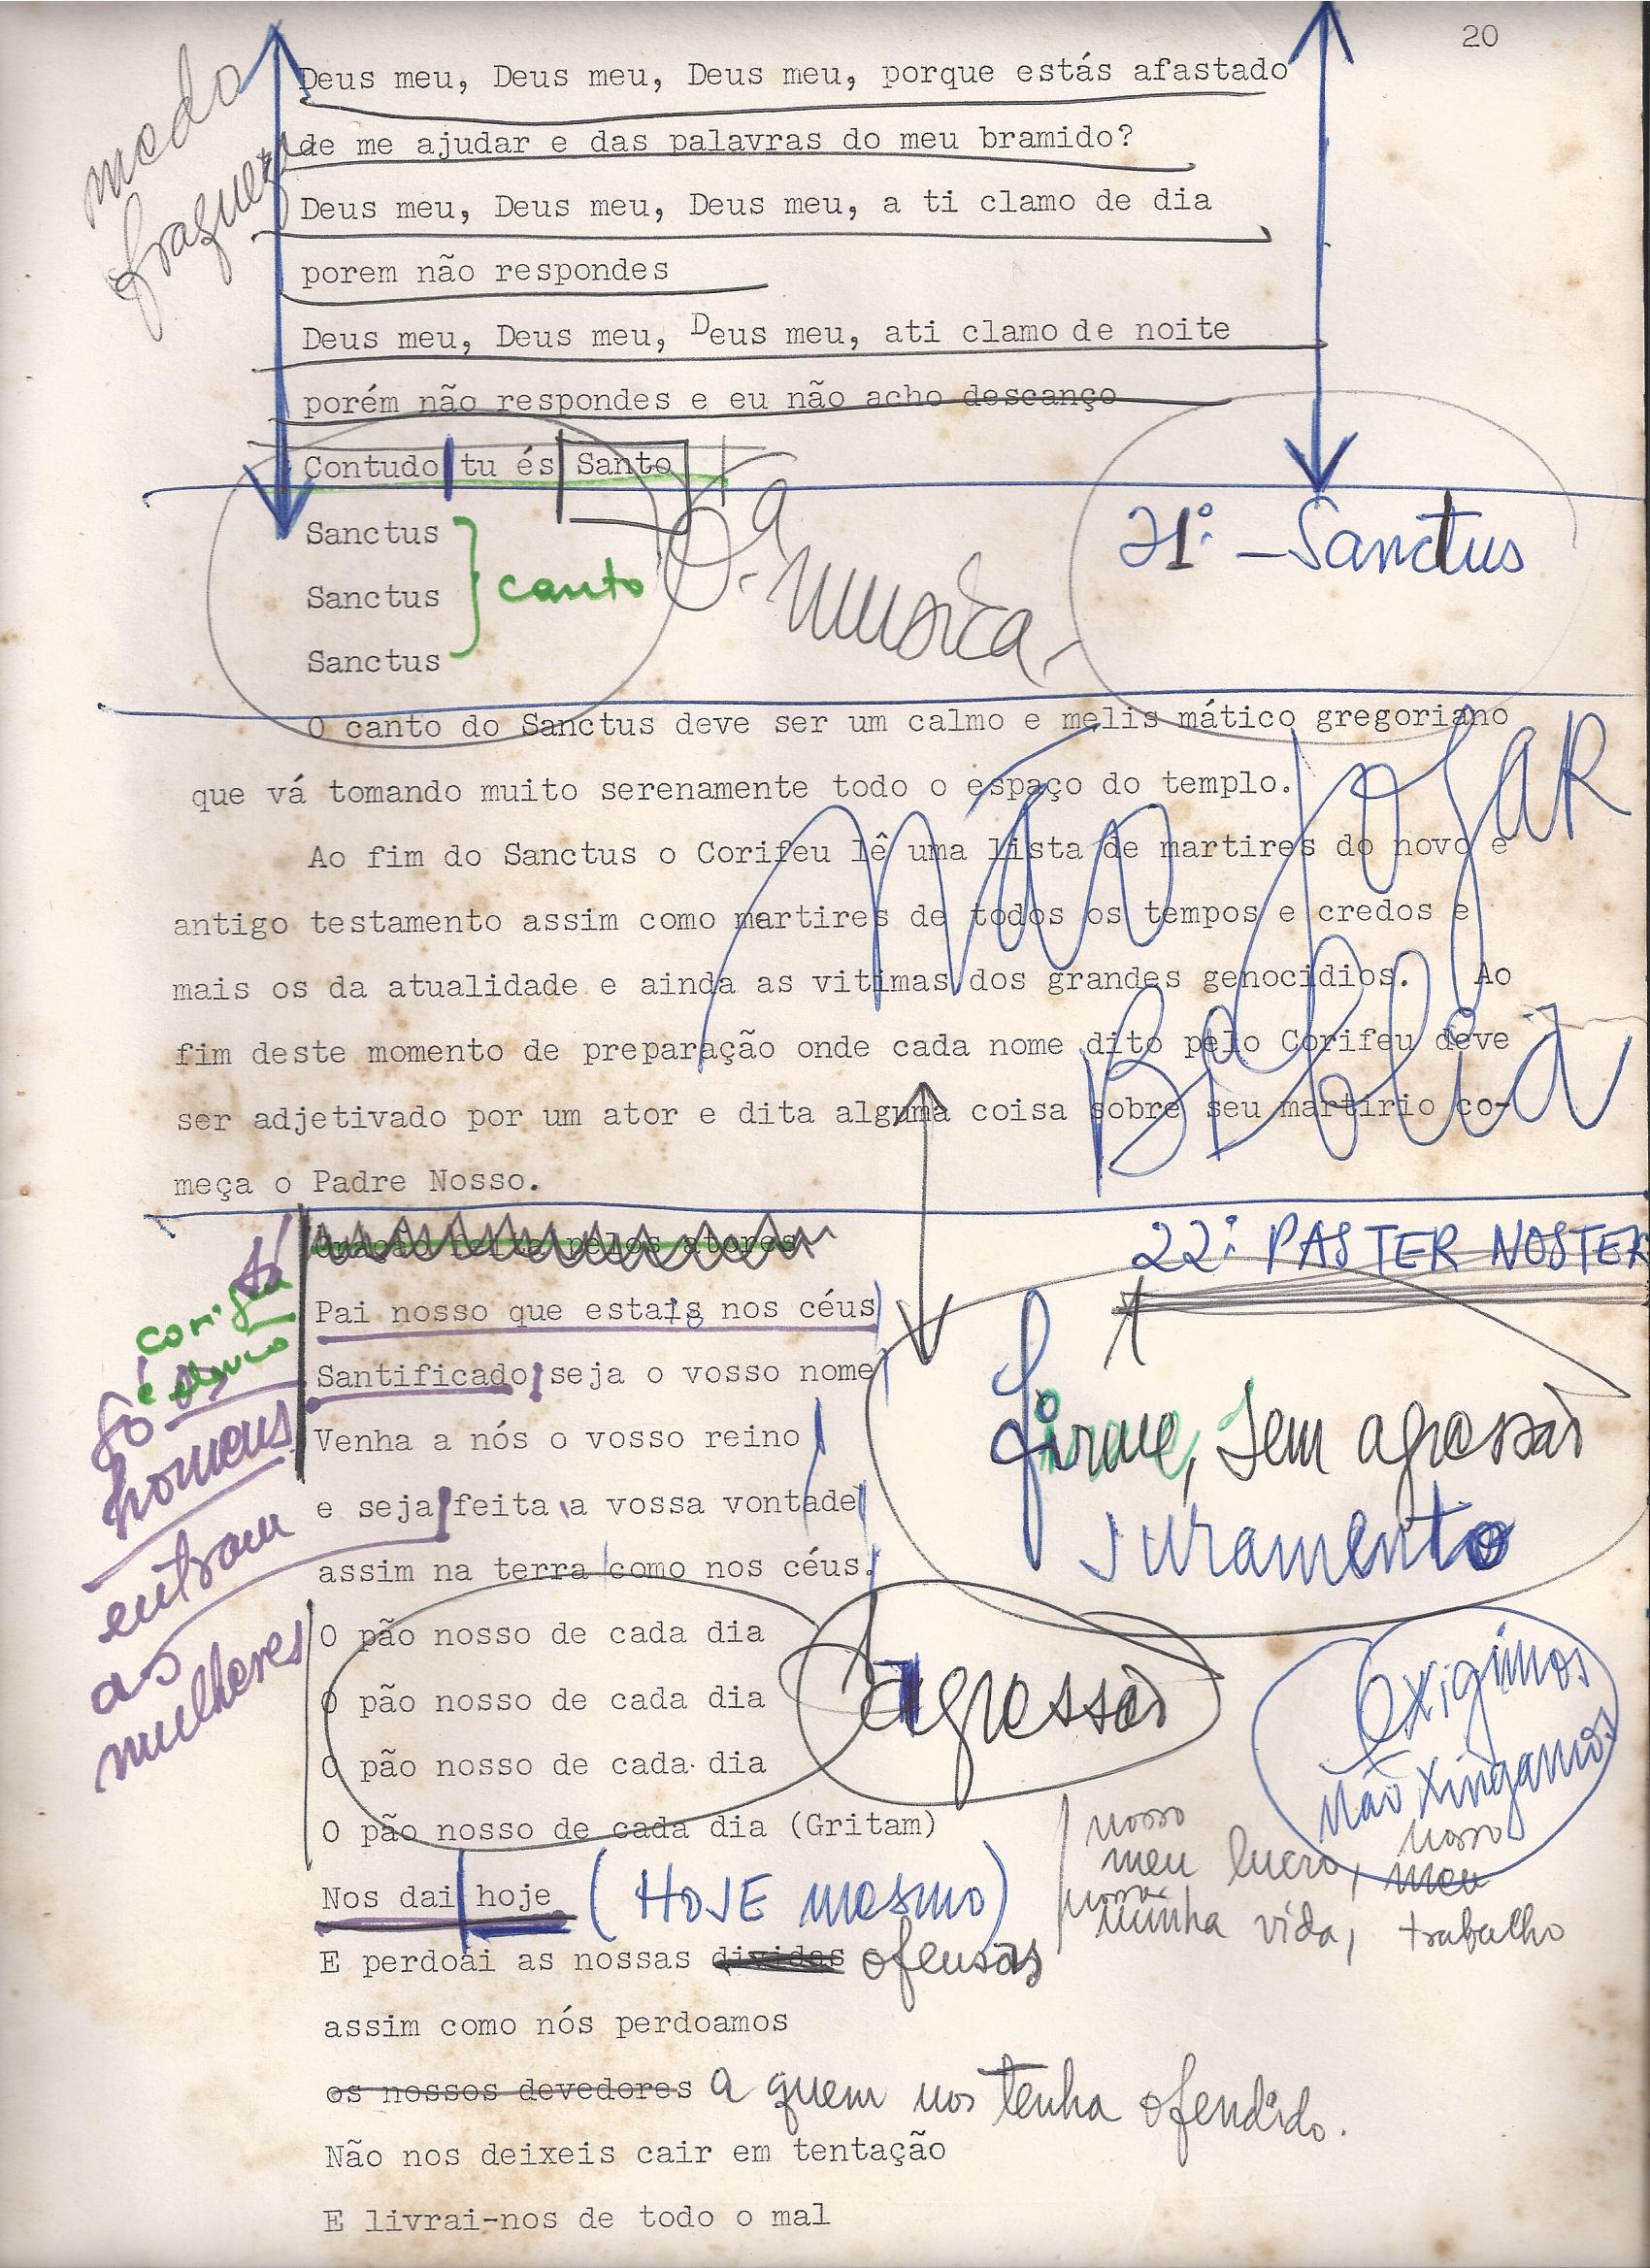 20
Deus meu, Deus meu, Deus meu, porque estás afastado
medo
de me ajudar e das palavras do meu bramido?
fraqueza
Deus meu, Deus meu, Deus meu, a ti clamo de dia
porem não respondes
Deus meu, Deus meu, Deus meu, ati clamo de noite
porém não respondes e eu não acho descanço
Contudo tu és Santo
Sanctus
21º - Sanctus
Sanctus canto
música
Sanctus
O canto do Sanctus deve ser um calmo e melis mático gregoriano
que vá tomando muito serenamente todo o espaço do templo.
não jogar
a Bíblia
Ao fim do Sanctus o Corifeu lê uma lista de martires do novo e
antigo testamento assim como martires de todos os tempos e credos e
mais os da atualidade e ainda as vitimas dos grandes genocidios. Ao
fim deste momento de preparação onde cada nome dito pelo Corifeu deve
ser adjetivado por um ator e dita alguma coisa sobre seu martirio co-
meça o Padre Nosso.
22º PASTER NOSTER
Pai nosso que estais nos céus
corifeu
e elenco
Santificado seja o vosso nome
Só os
homens
entram
as
mulheres
Venha a nós o vosso reino
firme, sem agressão
e seja feita a vossa vontade
juramento
assim na terra como nos céus.
O pão nosso de cada dia
O pão nosso de cada dia
agressão
exigimos
não xingamos
O pão nosso de cada dia
O pão nosso de cada dia (Gritam)
nosso nosso
meu lucro, meu
nossa
minha vida, trabalho
Nos dai hoje (HOJE mesmo)
E perdoai as nossas dividas ofensas
assim como nós perdoamos
os nossos devedores a quem nos tenha ofendido.
Não nos deixeis cair em tentação
E livrai-nos de todo o mal